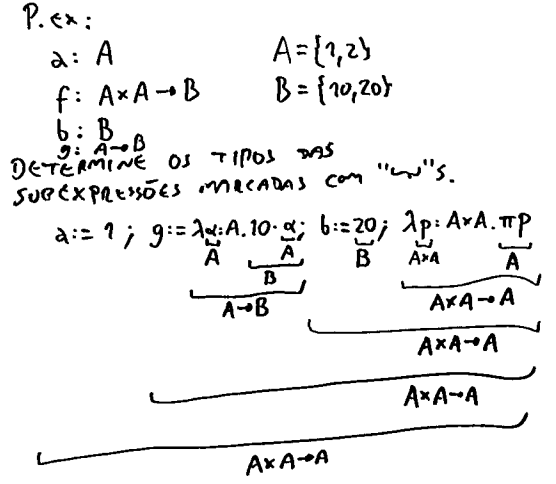 P. ex:
a: A A={1,2}
f: A×A→B B={10,20}
b: B
g: A→B
DETERMINE OS TIPOS DAS
SUBEXPRESSÕES MARCADAS COM "⏟"S.
a:=1; g:=λα:A.10·α; b:=20; λp:A×A.πp
A A B A×A A
B
A→B A×A→A
A×A→A
A×A→A
A×A→A